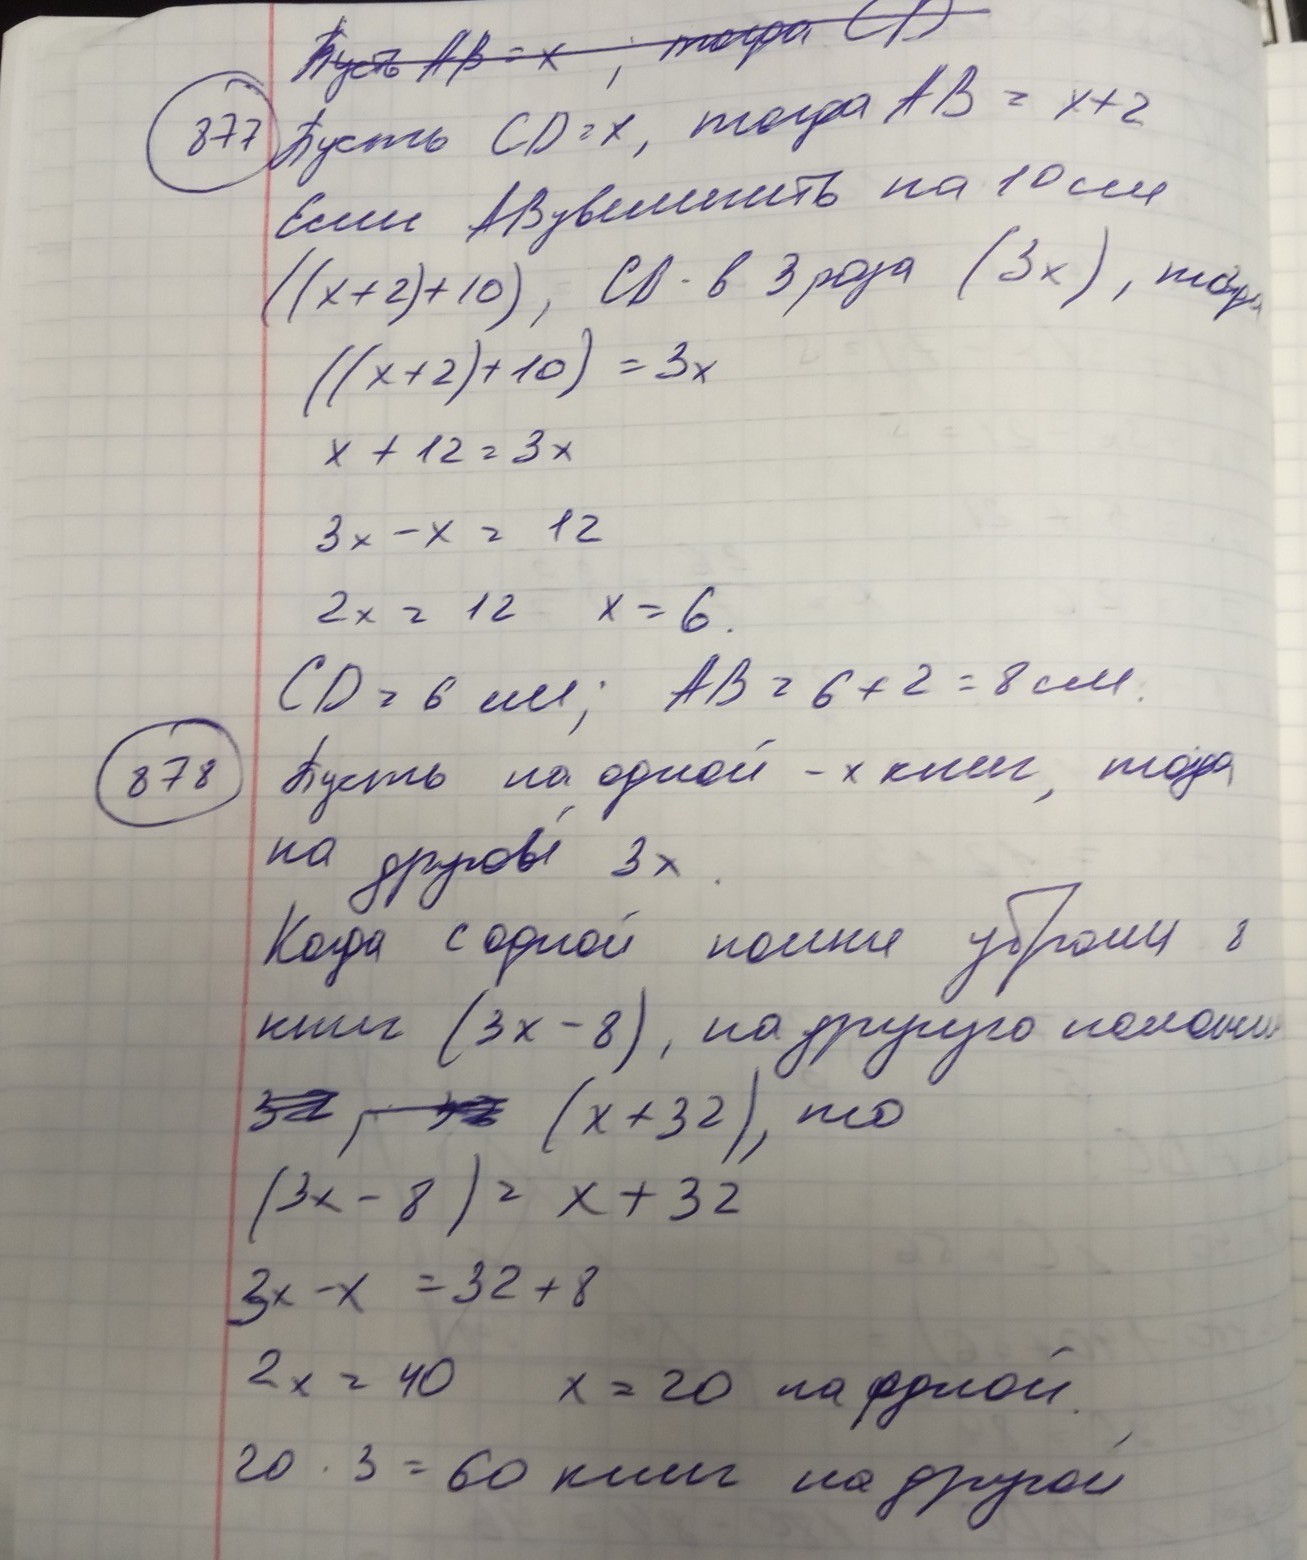 Пусть AB = x , тогда CD
877 Пусть CD = x, тогда AB = x+2
Если AB увеличить на 10 см
((x+2)+10), CD - в 3 раза (3x), тогда
((x+2)+10) = 3x
x + 12 = 3x
3x - x = 12
2x = 12 x = 6.
CD = 6 см; AB = 6 + 2 = 8 см.
878 Пусть на одной - x книг, тогда
на другой 3x.
Когда с одной полки убрали 8
книг (3x - 8), на другую положили
32, (x + 32), то
(3x - 8) = x + 32
3x - x = 32 + 8
2x = 40 x = 20 на одной.
20 · 3 = 60 книг на другой